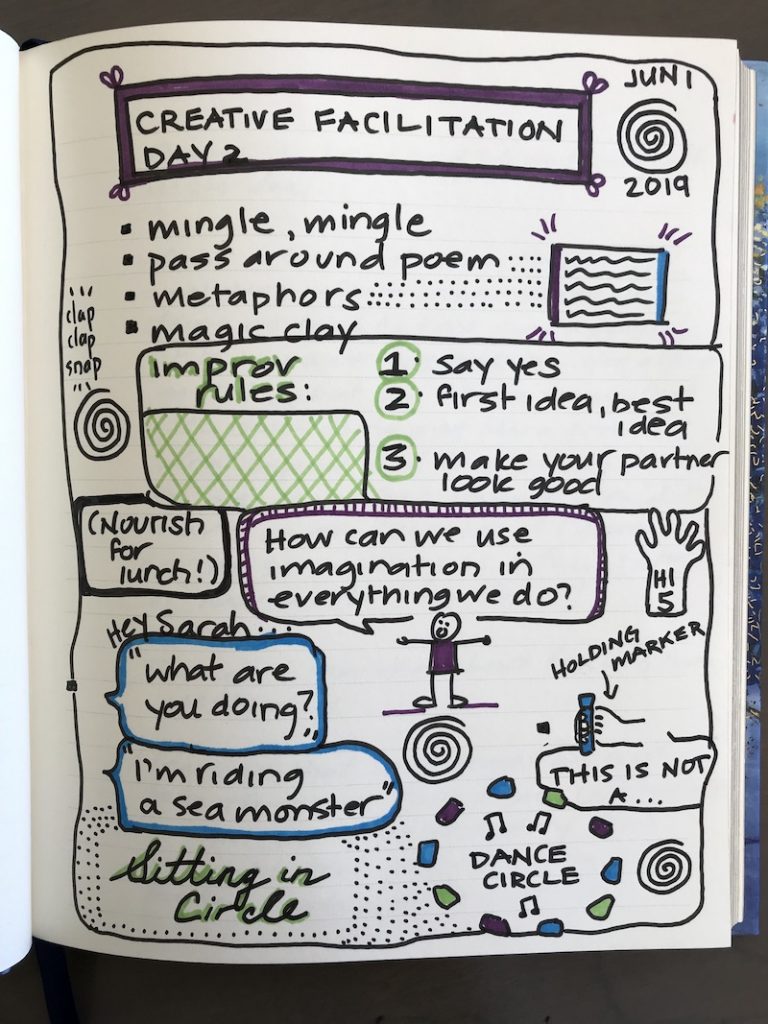 CREATIVE FACILITATION
DAY 2
JUN 1
2019
mingle, mingle
pass around poem
metaphors
magic clay
clap
clap
snap
improv
rules:
1. say yes
2. first idea, best
idea
3. make your partner
look good
(Nourish
for
lunch!)
How can we use
imagination in
everything we do?
HI
5
Hey Sarah...
"what are
you doing?"
"I'm riding
a sea monster"
HOLDING
MARKER
THIS IS NOT
A...
Sitting in
Circle
DANCE
CIRCLE